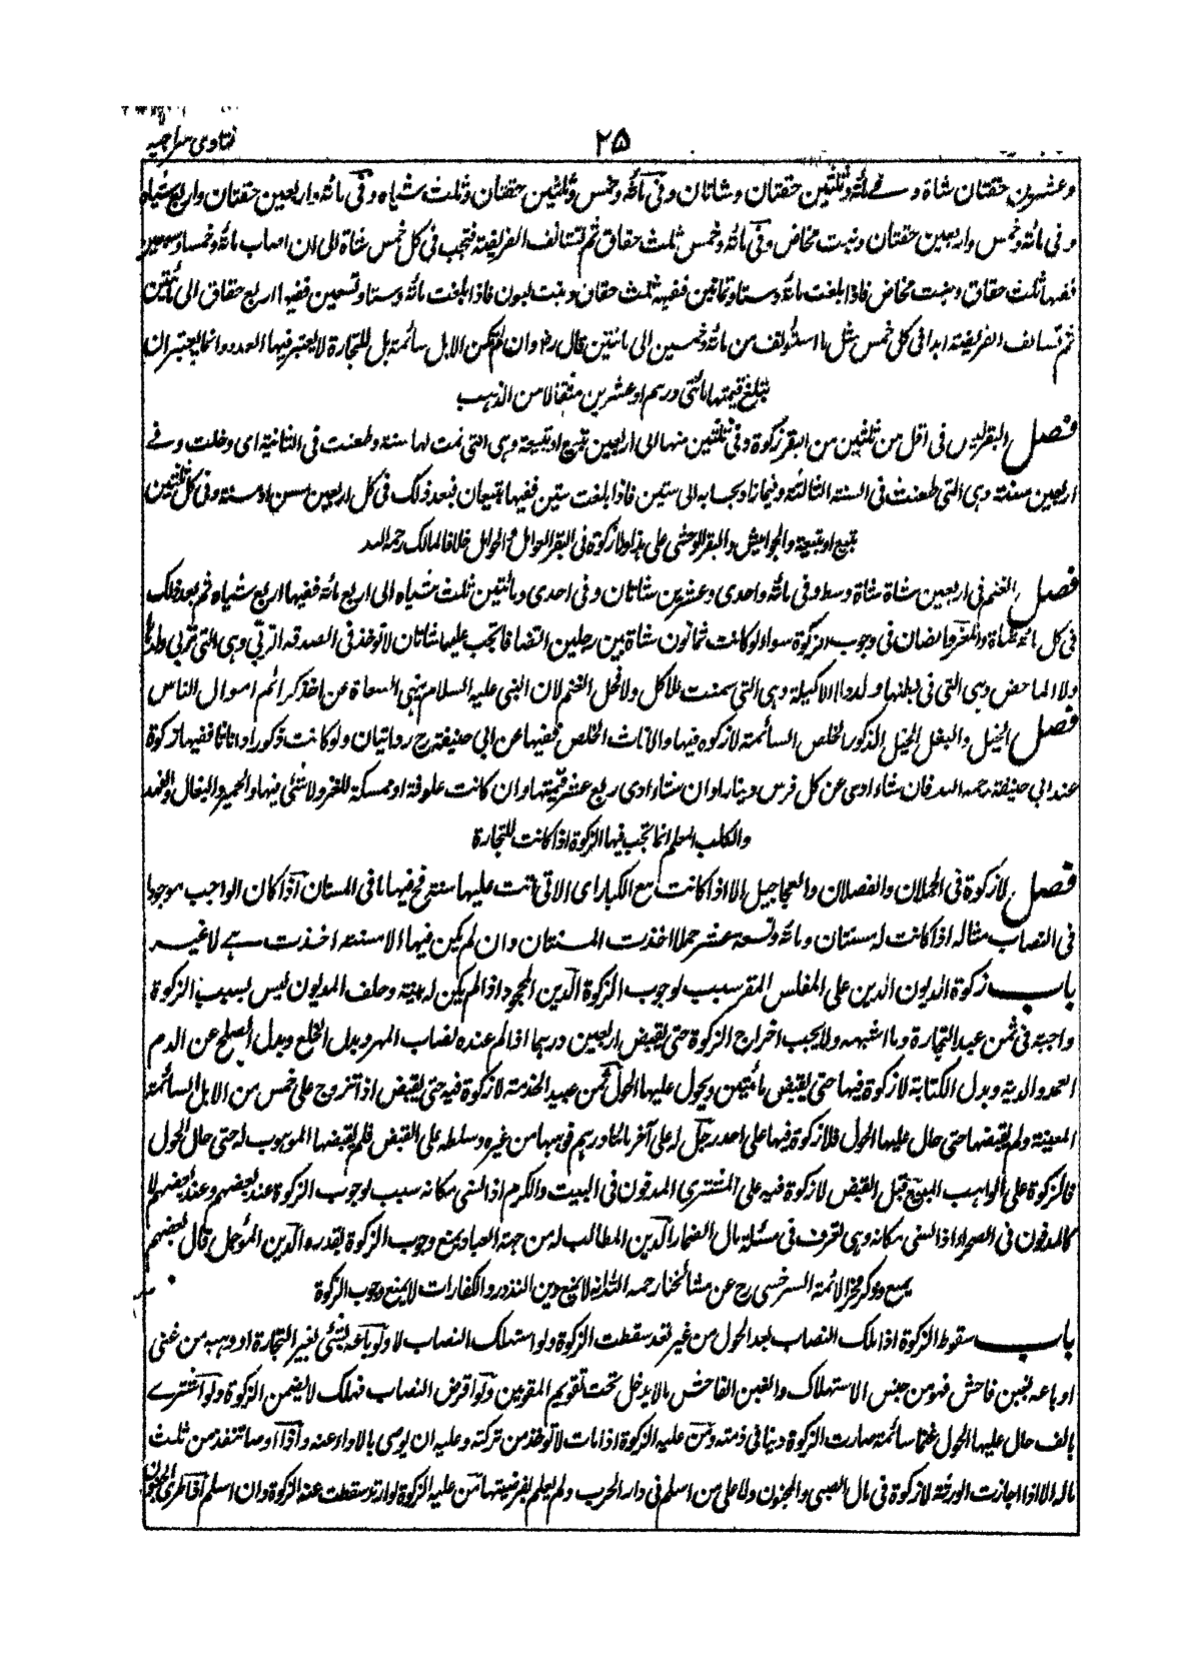 فتاوى سراجيه
٢٥
وعشرين حقتان شاة وفي مائة وثلثين حقتان وشاتان وفى مائة وخمس وثلثين حقتان وثلث شياه وفى مائة واربعين حقتان واربع شياه
وفى مائة وخمس واربعين حقتان وبنت مخاض وفى مائة وخمسين ثلث حقاق ثم تستانف الفريضة فتجب فى كل خمس شاة الى ان اصاب مائة وخمسا وسبعين
ففيها ثلث حقاق وبنت مخاض فاذا بلغت مائة وستا وثمانين ففيها ثلث حقاق وبنت لبون فاذا بلغت مائة وستا وتسعين ففيها اربع حقاق الى مائتين
ثم تستانف الفريضة ابدا فى كل خمس مثل ما استؤنف من مائة وخمسين الى مائتين قال رض وان لم تكن الابل سائمة بل للتجارة لا يعتبر فيها العدد وانما يعتبر ان
تبلغ قيمتها مائتى درهم او عشرين مثقالا من الذهب
فصل البقر ليس فى اقل من ثلثين من البقر زكوة وفى ثلثين منها الى اربعين تبيع او تبيعة وهى التى تمت لها سنة وطعنت فى الثانية اى دخلت وفے
اربعين مسنة وهى التى طعنت فى السنة الثالثة وفيما زاد بحسابه الى ستين فاذا بلغت ستين ففيها تبيعان فبعد ذلك فى كل اربعين مسن او مسنة وفى كل ثلثين
تبيع او تبيعة والجواميش والبقر الوحشى على هذا ولا زكوة فى البقر العوامل والحوامل خلافا لمالك رحمه الله
فصل الغنم فى اربعين شاة شاة وسط وفى مائة واحدى وعشرين شاتان وفى احدى ومائتين ثلث شياه الى اربع مائة ففيها اربع شياه ثم بعد ذلك
فى كل مائة شاة شاة والمعز والضان فى وجوب الزكوة سواء ولو كانت ثمانون شاة بين رجلين انتصافا تجب عليهما شاتان لا تؤخذ فى الصدقة الربى وهى التى تربى ولدها
ولا الماخض وهى التى فى بطنها ولد ولا الاكيلة وهى التى سمنت للاكل ولا فحل الغنم لان النبى عليه السلام نهى السعاة عن اخذ كرائم اموال الناس
فصل الخيل والبغل الخيل الذكور الخلص السائمة لا زكوة فيها والاناث الخلص ففيها عن ابى حنيفة رح روايتان ولو كانت ذكورا واناثا ففيها زكوة
عند ابى حنيفة رحمه الله فان شاء ادى عن كل فرس دينارا وان شاء ادى ربع عشر قيمتها وان كانت علوفة او ممسكة للغزو لا شئى فيها والحمير والبغال والفهد
والكلب المعلم انما تجب فيها الزكوة اذا كانت للتجارة
فصل لا زكوة فى الحملان والفصلان والعجاجيل الا اذا كانت مع الكبار اى الاتى اتت عليها سنة فح فيها ما فى المسان اذا كان الواجب موجودا
فى النصاب مثاله اذا كانت له مسنتان ومائة وتسعة عشر حملا اخذت المسنتان وان لم يكن فيها الا مسنة اخذت هے لا غير
باب زكوة الديون الدين على المفلس المقر سبب لوجوب الزكوة الدين المجحود اذا لم يكن له بينة وحلف المديون ليس بسبب الزكوة
واجبة فى ثمن عبد التجارة وما اشبهه ولا يجب اخراج الزكوة حتى يقبض اربعين درهما اذا تم عنده نصاب المهر وبدل الخلع وبدل الصلح عن الدم
العمد والدية وبدل الكتابة لا زكوة فيها حتى يقبض مائتين ويحول عليها الحول ثمن عبيد الخدمة لا زكوة فيه حتى يقبض اذا تزوج على خمس من الابل السائمة
المعينة ولم يقبضها حتى حال عليها الحول فلا زكوة فيها على احد رجل له على آخر مائتا درهم فوهبها من غيره وسلطه على القبض فلم يقبضها الموهوب له حتى حال الحول
فالزكوة على الواهب المبيع قبل القبض لا زكوة فيه على المشترى المدفون فى البيت والكرم اذا نسى مكانه سبب لوجوب الزكوة عند بعضهم وعند بعضهم لا
كالمدفون فى الصحراء اذا نسى مكانه وهى تعرف فى مسئلة مال الضمار الدين المطالب له من جهة العباد يمنع وجوب الزكوة بقدره والدين المؤجل قال بعضهم
يمنع وذكر فخر الائمة السرخسى رح عن مشائخنا رحمه الله انه لا يمنع دين النذور والكفارات لا يمنع وجوب الزكوة
باب سقوط الزكوة اذا هلك النصاب بعد الحول من غير تعد سقطت الزكوة ولو استهلك النصاب لا ولو باعه بشئى لغير التجارة او وهبه من غنى
او باعه بغبن فاحش فهو من جنس الاستهلاك والغبن الفاحش ما لا يدخل تحت تقويم المقومين ولو اقرض النصاب فهلك لا يضمن الزكوة ولو اشترے
بالف حال عليها الحول غنما سائمة صارت الزكوة دينا فى ذمته ومن عليه الزكوة اذا مات لا تؤخذ من تركته وعليه ان يوصى بالاداء عنه واذا اوصا تنفذ من ثلث
ماله الا اذا اجازت الورثة لا زكوة فى مال الصبى والمجنون ولا على من اسلم فى دار الحرب ولم يعلم بفرضيتها من عليه الزكوة لو ارتد سقطت عنه الزكوة وان اسلم اذا طرى الجنون